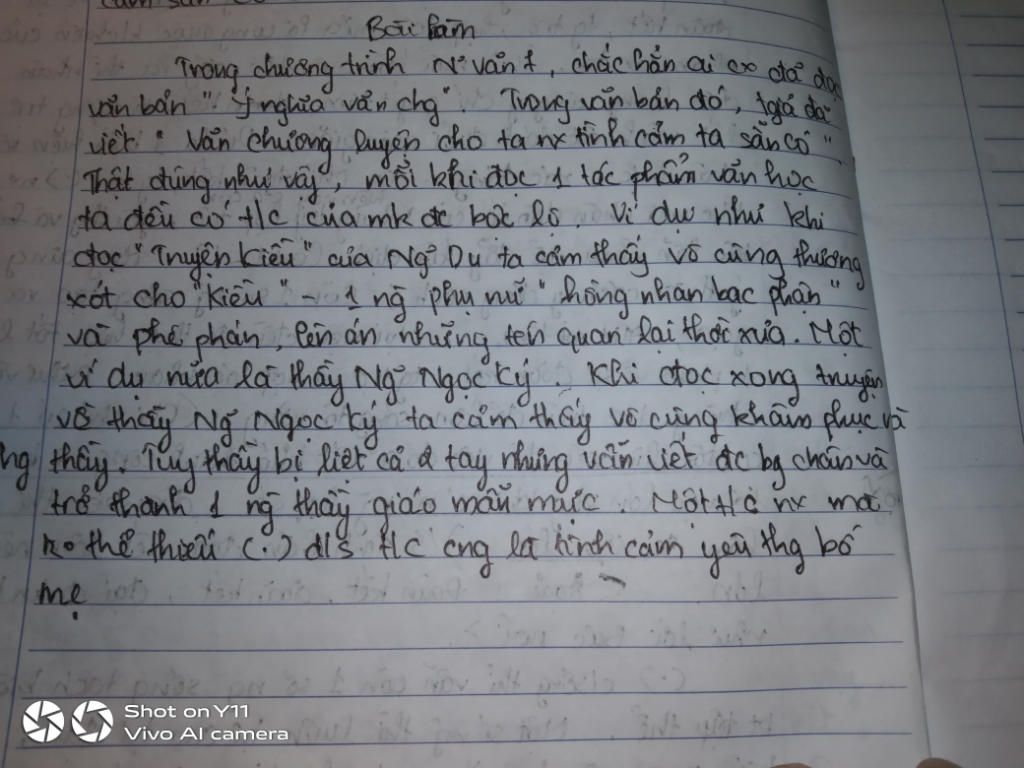 Bài làm
Trong chương trình N° văn 7, chắc hẳn ai cx đã đọc
văn bản "Ý nghĩa văn chg". Trong văn bản đó, tgiả đã
viết "Văn chương luyện cho ta nx tình cảm ta sẵn có".
Thật đúng như vậy, mỗi khi đọc 1 tác phẩm văn học
ta đều có t/c của mk đc bộc lộ. Ví dụ như khi
đọc "Truyện kiều" của Ng~ Du ta cảm thấy vô cùng thương
xót cho "kiều" - 1 ng phụ nữ "hồng nhan bạc phận"
và phê phán, lên án những tên quan lại thời xưa. Một
ví dụ nữa là thầy Ng~ Ngọc Ký. Khi đọc xong truyện
về thầy Ng~ Ngọc Ký ta cảm thấy vô cùng khâm phục và
thầy. Tuy thầy bị liệt cả 2 tay nhưng vẫn viết đc bg chân và
trở thành 1 ng thầy giáo mẫu mực. Một t/c nx mà
ko thể thiếu (.) đ/s t/c cng là tình cảm yêu thg bố
mẹ
Shot on Y11
Vivo AI camera